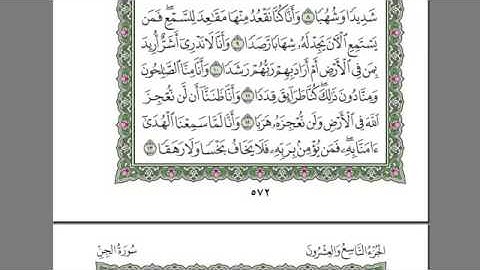 شَدِيدًا وَشُهُبًا ٨ وَأَنَّا كُنَّا نَقْعُدُ مِنْهَا مَقَٰعِدَ لِلسَّمْعِ ۖ فَمَن
يَسْتَمِعِ الْآنَ يَجِدْ لَهُۥ شِهَابًا رَّصَدًا ٩ وَأَنَّا لَا نَدْرِىٓ أَشَرٌّ أُرِيدَ
بِمَن فِى الْأَرْضِ أَمْ أَرَادَ بِهِمْ رَبُّهُمْ رَشَدًا ١٠ وَأَنَّا مِنَّا الصَّٰلِحُونَ
وَمِنَّا دُونَ ذَٰلِكَ ۖ كُنَّا طَرَآئِقَ قِدَدًا ١١ وَأَنَّا ظَنَنَّآ أَن لَّن نُّعْجِزَ
اللَّهَ فِى الْأَرْضِ وَلَن نُّعْجِزَهُۥ هَرَبًا ١٢ وَأَنَّا لَمَّا سَمِعْنَا الْهُدَىٰٓ
ءَامَنَّا بِهِۦ ۖ فَمَن يُؤْمِنۢ بِرَبِّهِۦ فَلَا يَخَافُ بَخْسًا وَلَا رَهَقًا ١٣
٥٧٢
الجُزْءُ التَّاسِعُ وَالعِشْرُونَ سُورَةُ الجِنِّ